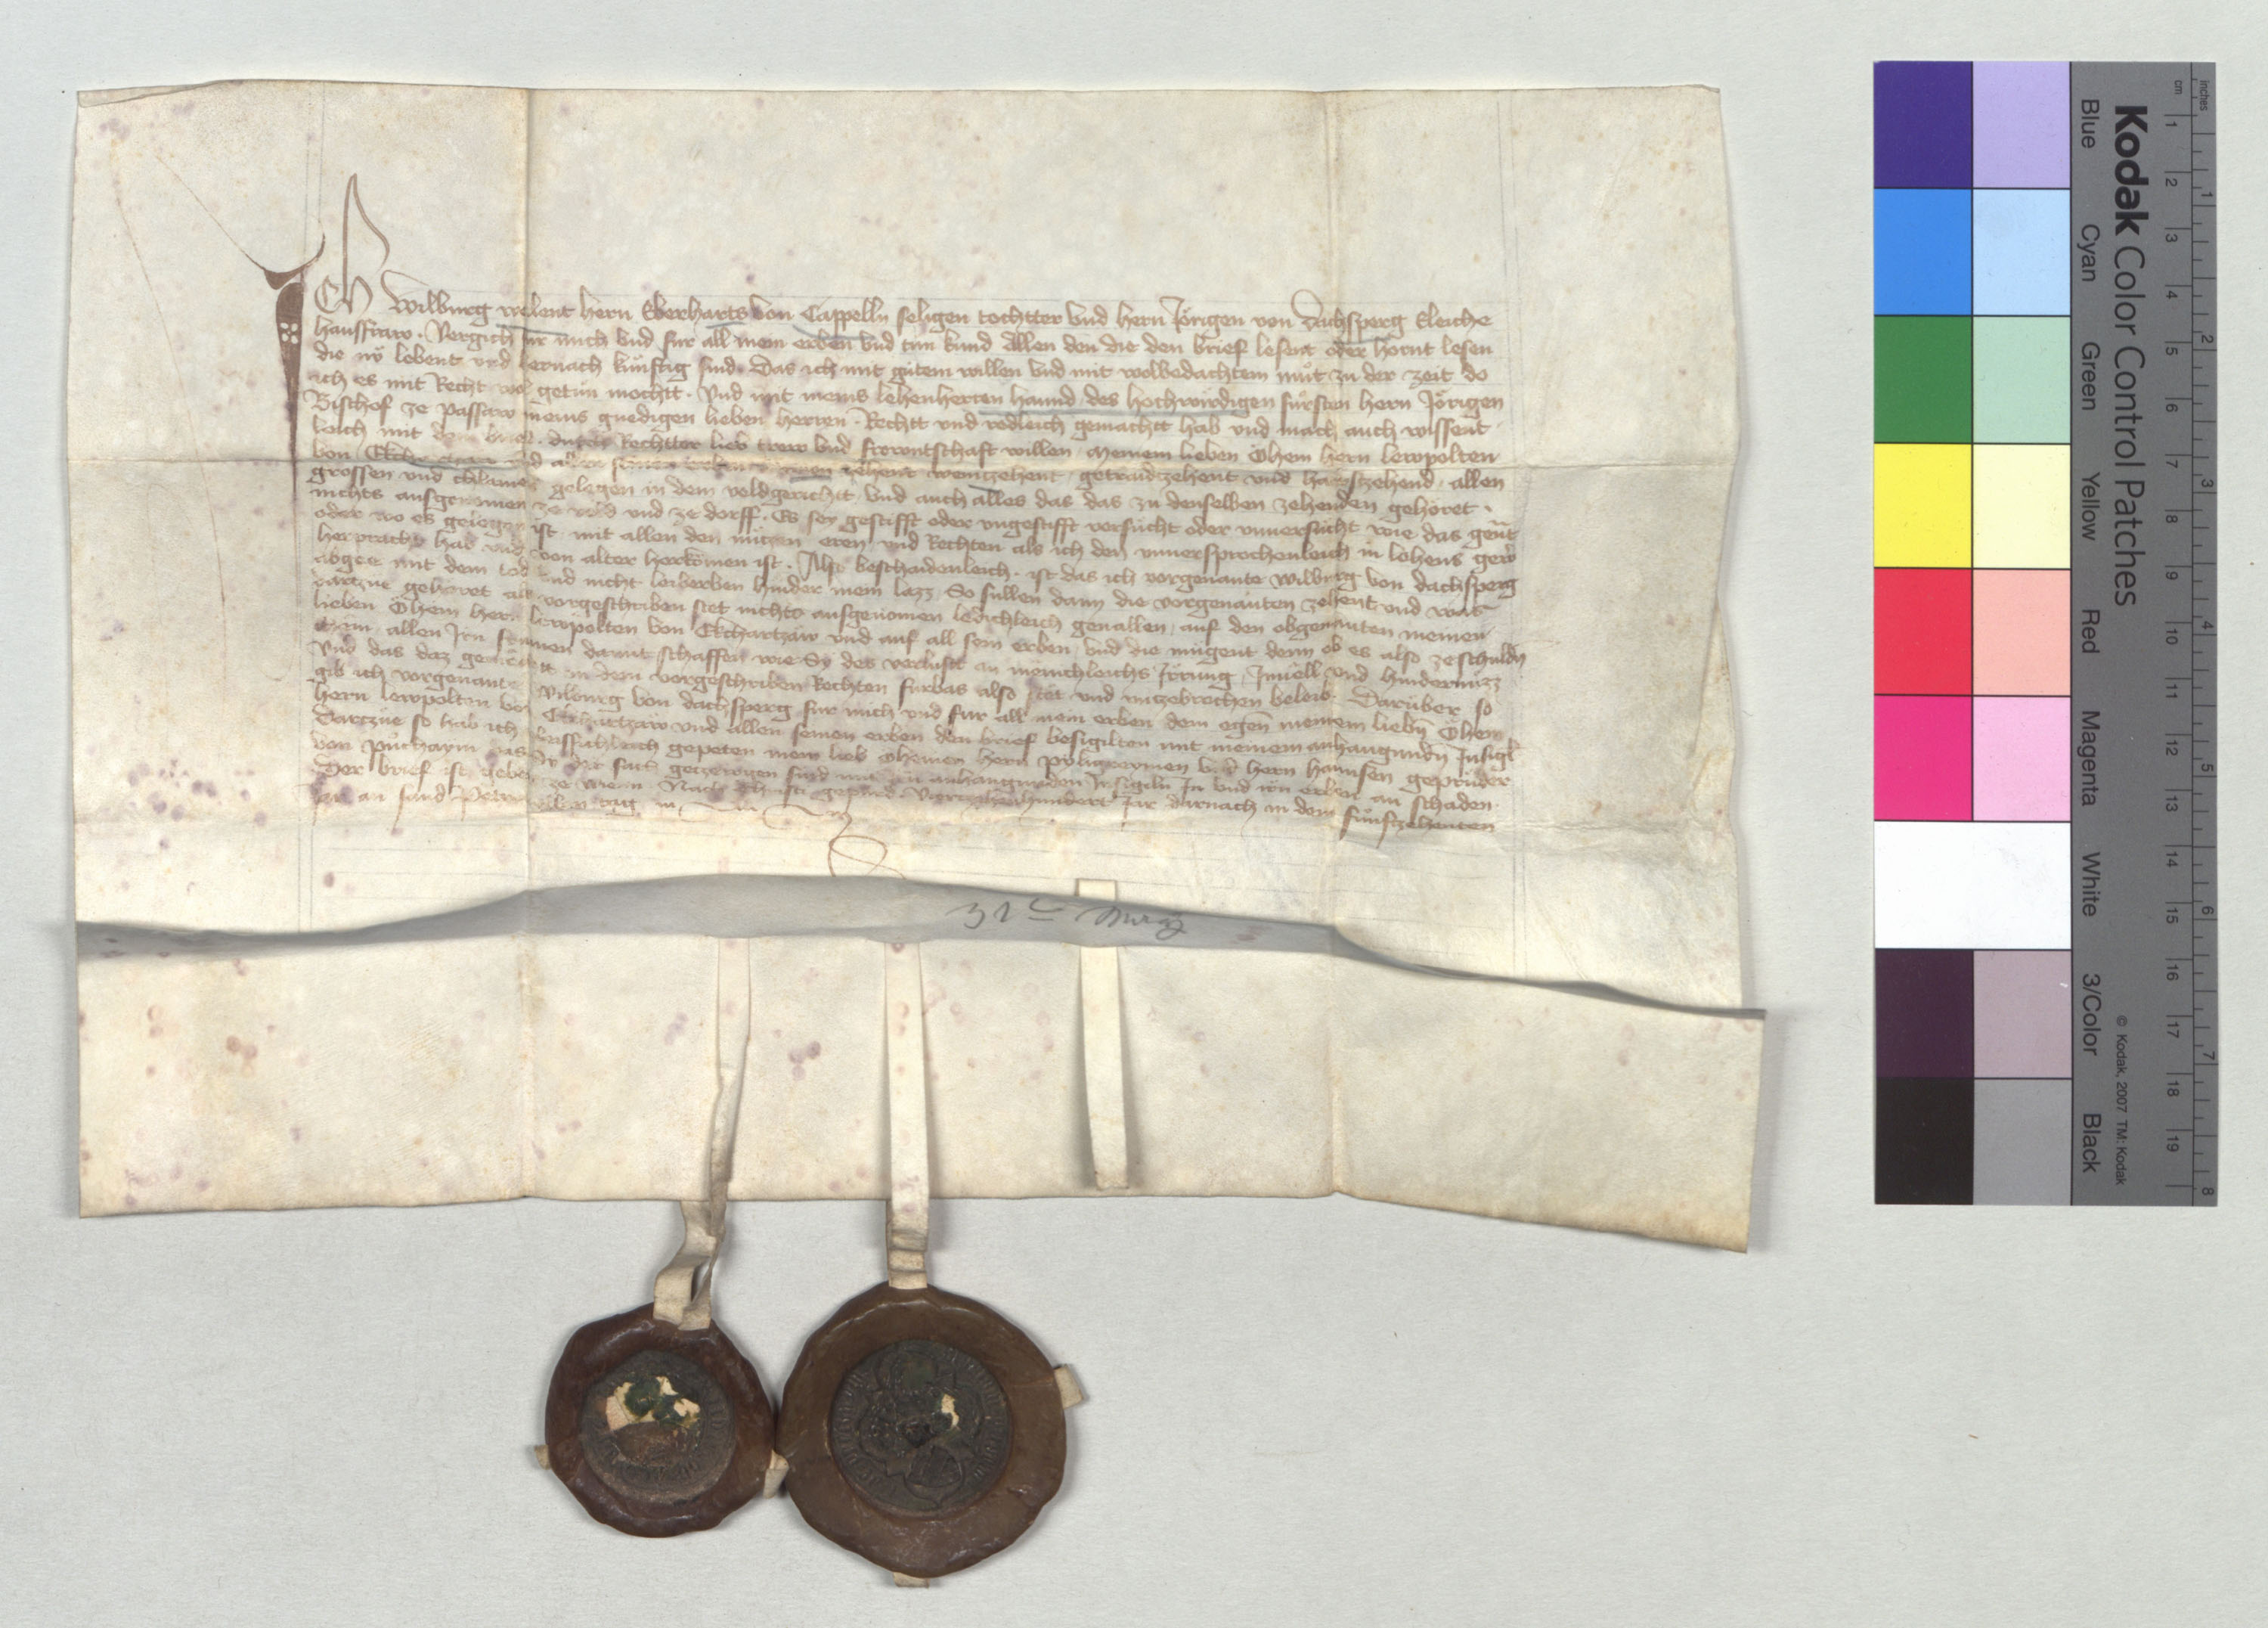 Ich Wilburg welent hern Eberharts von Cappelln seligen tochtter vnd hern Jörigen von Dachsperg Eleiche
hausfraw. Vergich fur mich vnd fur all mein erben vnd tun kund allen den die den brief lesent oder hornt lesen
die nv lebent vnd hernach kunftig sind. Das ich mit gutem willen vnd mit wolbedachtem mut zu der zeit do
ich es mit Recht wol getun mochtt. Vnd mit meins lehenherren hannd des hochwirdigen fursten hern Jörigen
Bischof ze passaw meins gnedigen lieben herren. Rechtt vnd redleich gemachtt hab vnd mach auch wissent
leich mit dem brief. durch Rechtter lieb trew vnd frewntschaft willen, Meinem lieben Öhem hern lewpolten
von vnd allen seinen zehent weintzehent, getraidzehent vnd zehend, allen
grossen vnd chlainen gelegen in dem veldgerichtt, vnd auch alles das das zu denselben zehenden gehöret.
nichts ausgenomen ze veld vnd ze dorff. Es sey gestifft oder vngestifft versucht oder vnuersucht wie das genant
oder wo es gelegen ist, mit allen den nutzen eren vnd Rechten als ich den vnuersprochenleich in lehens gewer
herpracht hab vnd von alter herkomen ist. Also beschaidenleich. ist das ich vorgenante Wilburg von dachsperg
abgee mit dem tod vnd nicht leiberben hinder mein lazz So sullen dann die vorgenanten zehent vnd was
dartzue gehoret als vorgeschriben stet nichts ausgenomen ledichleich geuallen, auf den obgenanten meinen
lieben Öhem hern lewpolten von Ekchartzaw vnd auf all sein erben, vnd die mugent denn ob es also ze schulden
chem, allen Jrn frumen damit schaffen wie Sy des verlustt an mennichleichs Jrrung, Jnuell vnd hindernuzz
Vnd das daz gemecht in dem vorgeschriben Rechten furbas also stet vnd vnzebrochen beleib. Darüber so
gib ich vorgenante Wilburg von dachsperg fur mich vnd fur all mein erben dem egen meinem liebn Öhem
hern lewpolten von Ekchartzaw vnd allen seinen erben den brief besigilten mit meinem anhangundn Insigl
Dartzue so hab ich vleissichleich gepeten mein lieb Öhemen hern pilgreymen vnd hern hannsen geprüder
von půchaym das Sy der sach getzewgen sind mit irn anhangunden Insigiln In vnd irn erben an schaden.
Der brief ist geben ze Wienn Nach Christi gepurd Vierzehenhundert Jar darnach in dem fünftzehenten
Jar an sand tag
31te März
Kodak Color Control Patches
Blue Cyan Green Yellow Red Magenta White 3/Color Black
© Kodak, 2007 TM: Kodak
inches 1 2 3 4 5 6 7 8
cm 1 2 3 4 5 6 7 8 9 10 11 12 13 14 15 16 17 18 19